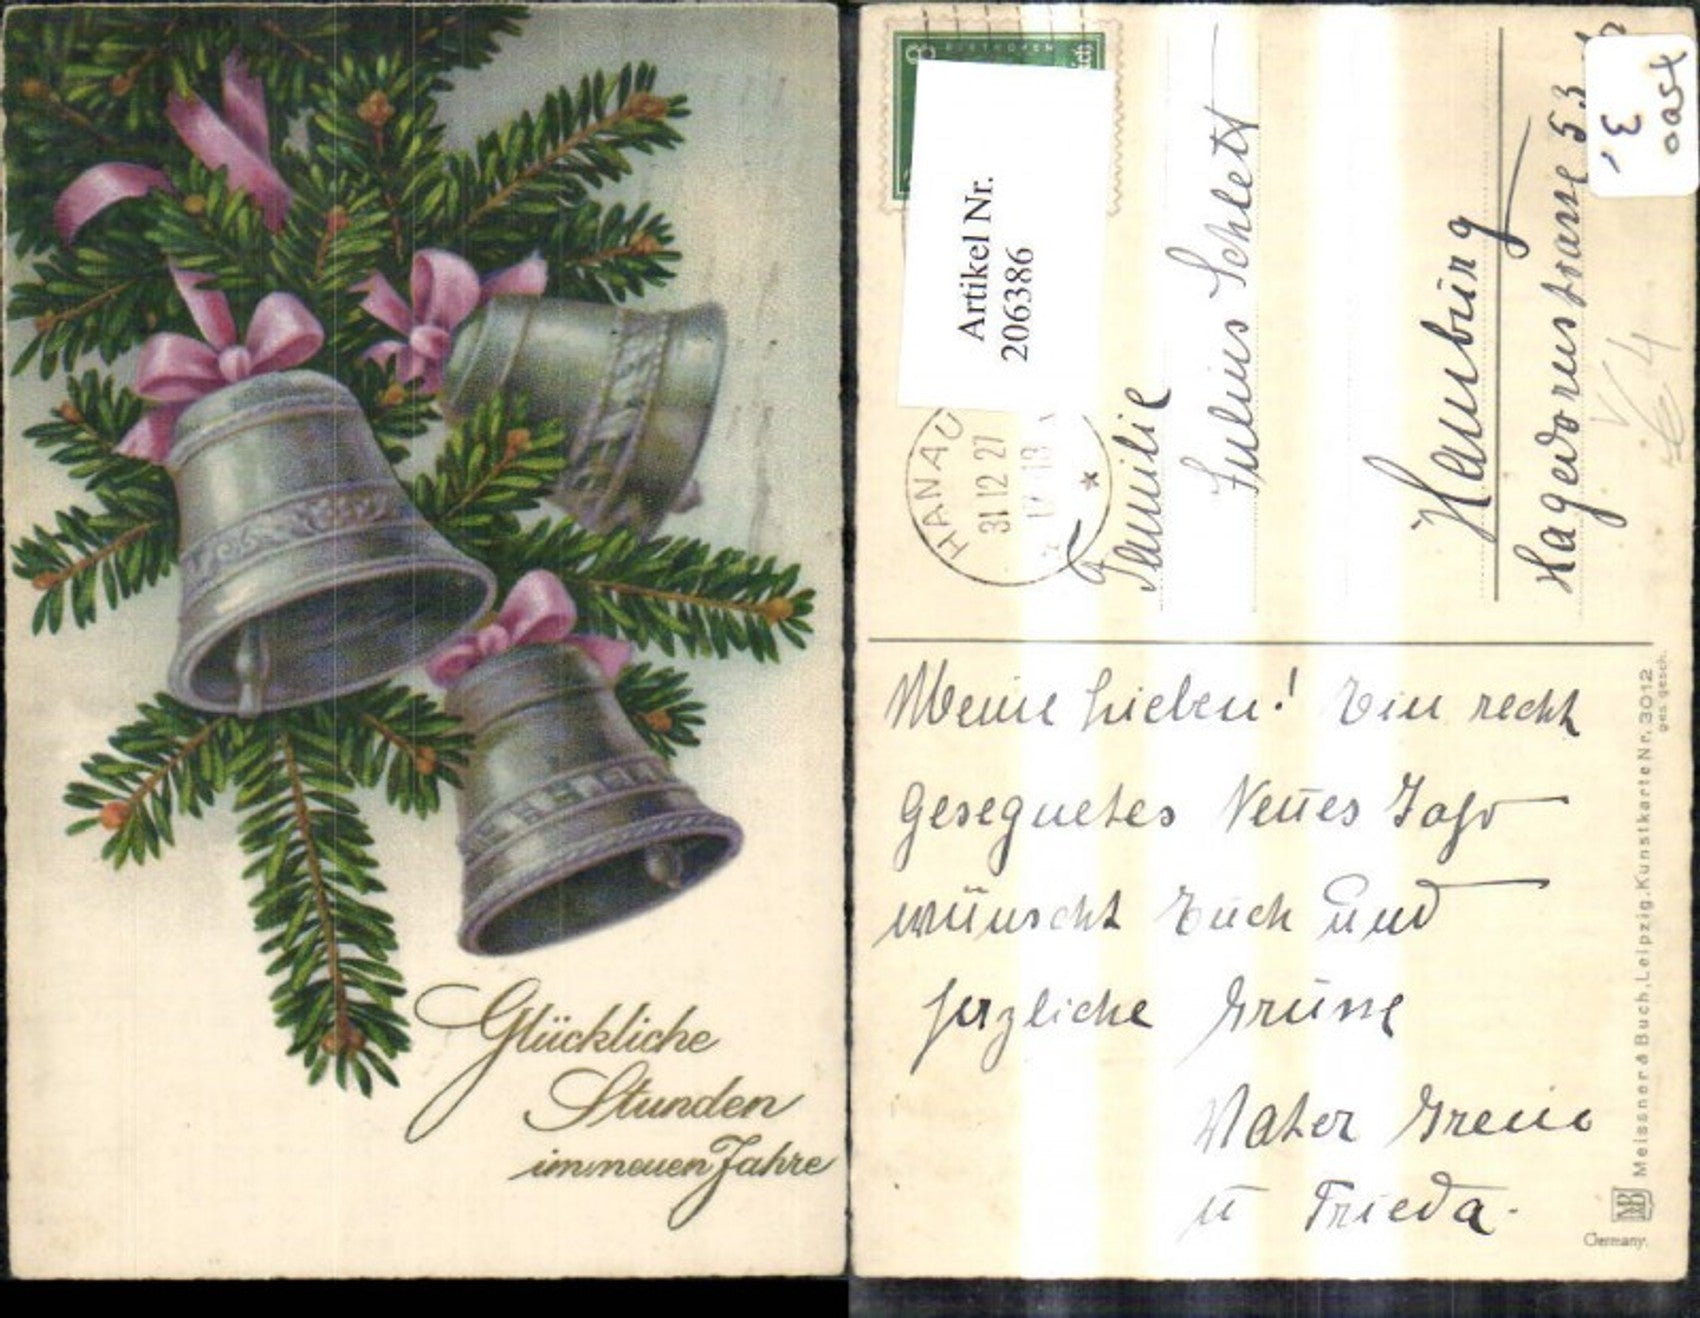 Glückliche
Stunden
im neuen Jahre
8
BEETHOVEN
Artikel Nr.
206386
HANAU
31 12 27
Familie
Julius Schlett
Hamburg
Hagedornstrasse 53
V 4
3,
Meine Lieben! Ein recht
Gesegnetes Neues Jahr
wünscht Euch und
herzliche Grüsse
Vater Greiio
u Frieda.
Meissner & Buch, Leipzig. Kunstkarte Nr. 3012
ges. gesch.
MB
Germany.